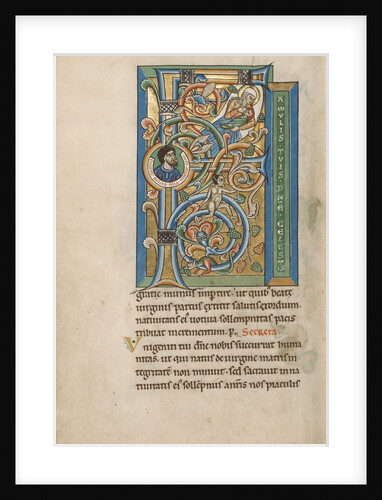 F
AMULIS TUIS DNE CELEST
gratie munus impertire. ut quib' beate
uirginis partus extitit salutis exordium.
natiuitatis ei' uotiua sollempnitas pacis
tribuat incrementum. p. Secreta.
Vnigeniti tui dne nobis succurrat huma
nitas. ut qui natus de uirgine matris in
tegritate non minuit. sed sacrauit in na
tiuitatis ei' sollempniis a nris nos piaculis